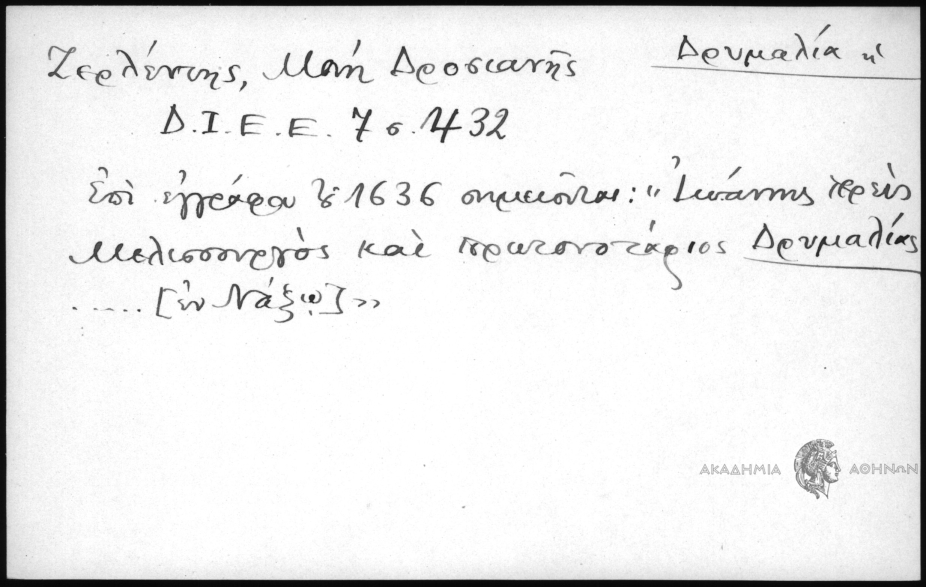 Δρυμαλία ἡ
Ζερλέντης, Μονὴ Δροσιανῆς
Δ.Ι.Ε.Ε. 7 σ. 432
Ἐπὶ ἐγγράφου τοῦ 1636 σημειοῦται: "Ἰωάννης ἱερεὺς
Μελισσουργὸς καὶ πρωτονοτάριος Δρυμαλίας
..... [ἐν Νάξῳ]»
ΑΚΑΔΗΜΙΑ ΑΘΗΝΩΝ